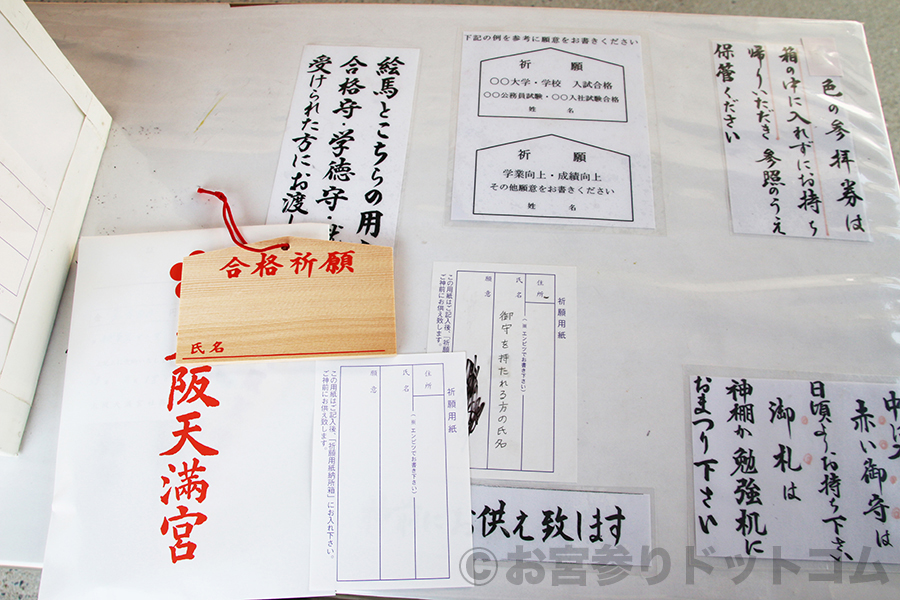 絵馬とこちらの用
合格守・学徳守・
受けられた方にお渡し
下記の例を参考に願意をお書きください
祈 願
○○大学・学校 入試合格
○○公務員試験・○○入社試験合格
姓 名
祈 願
学業向上・成績向上
その他願意をお書きください
姓 名
色の参拝券は
箱の中に入れずにお持ち
帰りいただき 参照のうえ
保管ください
合格祈願
氏名
阪天満宮
祈願用紙
住所
氏名
(※エンピツでお書き下さい)
御守を持たれる方の氏名
願意
この用紙はご記入後、「祈願
ご神前にお供え致します。
祈願用紙
住所
氏名
(※エンピツでお書き下さい)
願意
この用紙はご記入後、「祈願用紙納所箱」にお入れ下さい。
ご神前にお供え致します。
お供え致します
赤い御守は
日頃よりお持ち下さい
御札は
神棚か勉強机に
おまつり下さい
©お宮参りドットコム